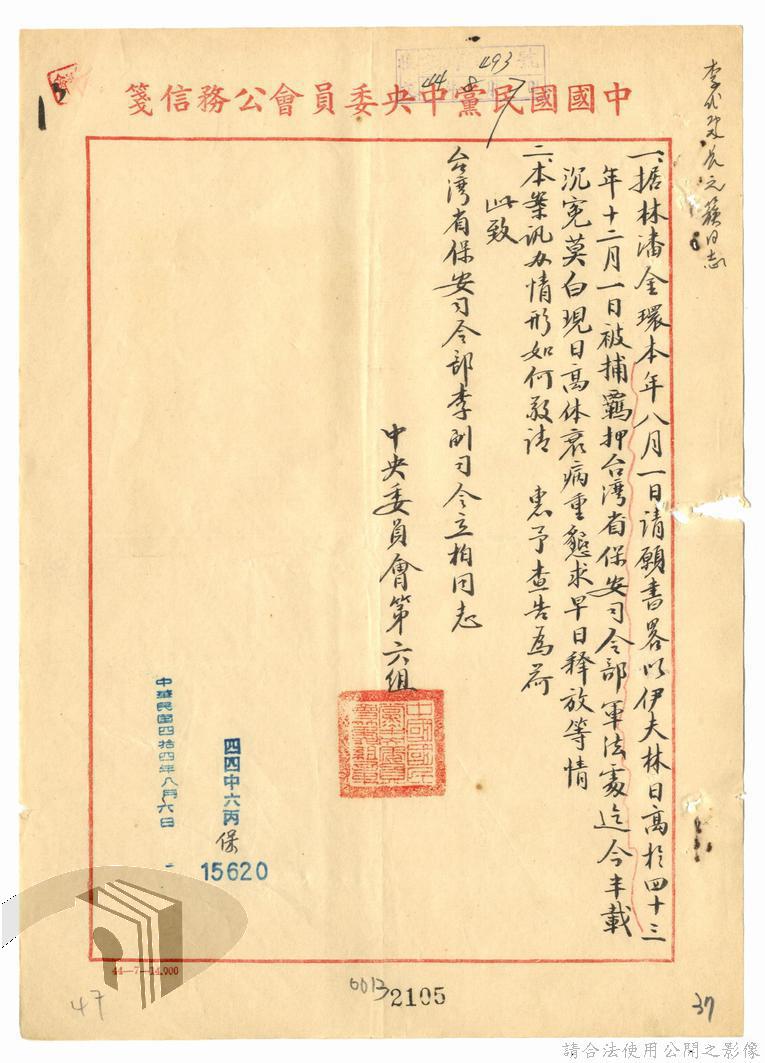 中國國民黨中央委員會公務信箋
493
44 8 7
一、据林潘金環本年八月一日請願書畧以伊夫林日高於四十三
年十二月一日被捕羈押台湾省保安司令部軍法處迄今半載
沉冤莫白現日高体衰病重懇求早日释放等情
二、本案訊办情形如何敬請 惠予查告為荷
此致
台湾省保安司令部李副司令立柏同志
中央委員會第六組
四四中六丙保
15620
中華民國四拾四年八月六日
44—7—14.000
47
0013
2105
37
請合法使用公開之影像